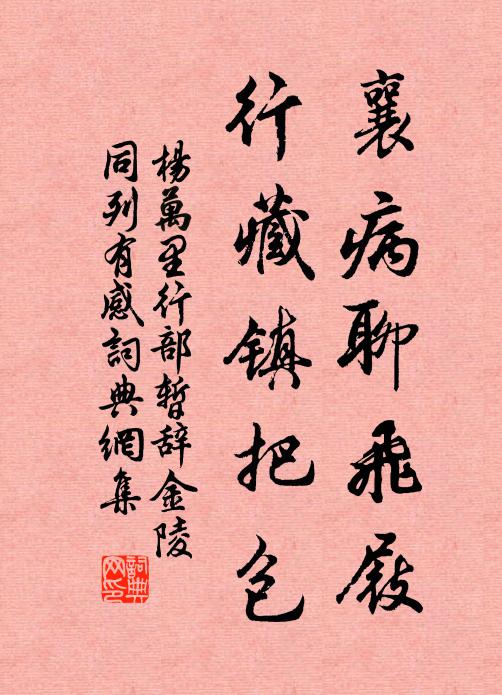 襄病聊飛屐
行藏镇把包
楊萬里行部暫辭金陵
同列有感詞典網集
詞典
网印